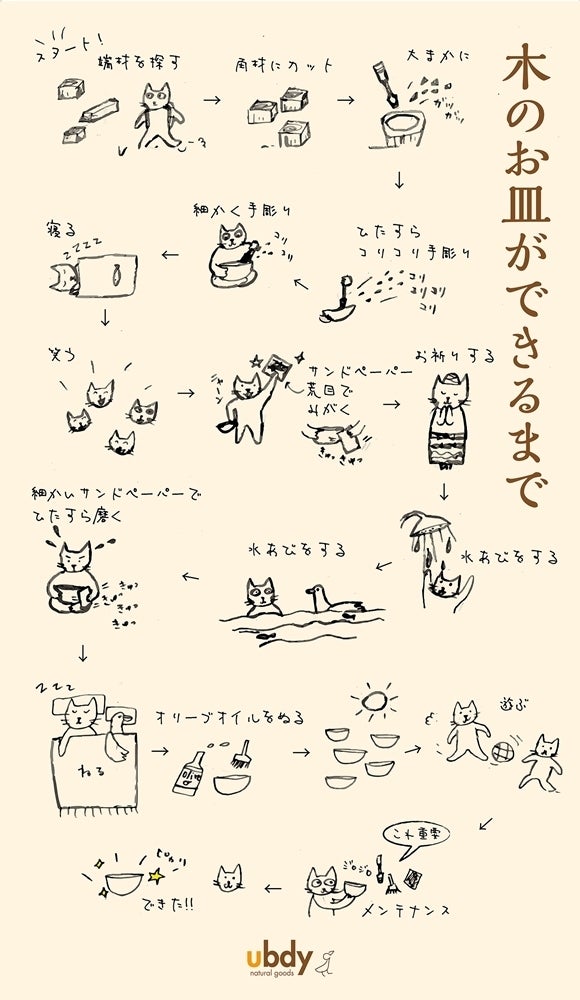 木のお皿ができるまで
スタート!
端材を探す
角材にカット
大まかに
ガリ
ガッ
ひたすら
コリコリ手彫り
コリ
コリコリ
コリ
細かく手彫り
コリ
コリ
寝る
zzzz
笑う
ジャーン
サンドペーパー
荒目で
みがく
きゅっきゅっ
お祈りする
水あびをする
水あびをする
細かいサンドペーパーで
ひたすら磨く
きゅっ
きゅっ
きゅっ
きゅっ
zzz
ねる
オリーブオイルをぬる
Olive
遊ぶ
これ重要
ジロジロ
メンテナンス
ピカリ
できた!!
ubdy
natural goods